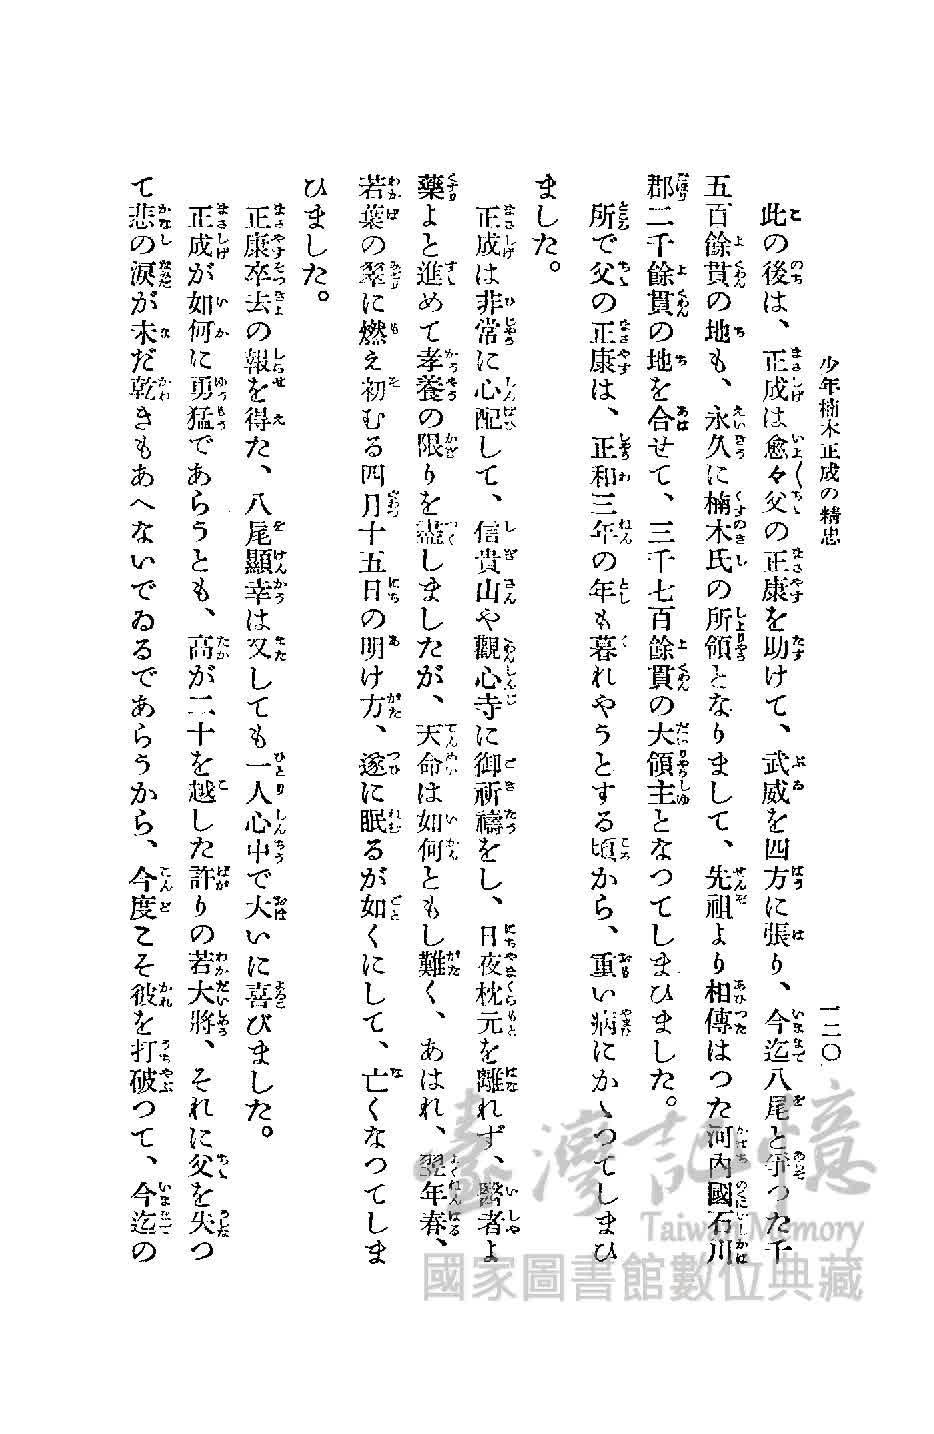 少年楠木正成の精忠
一二〇
此の後は、正成は愈々父の正康を助けて、武威を四方に張り、今迄八尾と爭つた千
五百餘貫の地も、永久に楠木氏の所領となりまして、先祖より相傳はつた河內國石川
郡二千餘貫の地を合せて、三千七百餘貫の大領主となつてしまひました。
所で父の正康は、正和三年の年も暮れやうとする頃から、重い病にかゝつてしまひ
ました。
正成は非常に心配して、信貴山や觀心寺に御祈禱をし、日夜枕元を離れず、醫者よ
藥よと進めて孝養の限りを盡しましたが、天命は如何ともし難く、あはれ、翌年春、
若葉の翠に燃え初むる四月十五日の明け方、遂に眠るが如くにして、亡くなつてしま
ひました。
正康卒去の報を得た、八尾顯幸は又しても一人心中で大いに喜びました。
正成が如何に勇猛であらうとも、高が二十を越した許りの若大將、それに父を失つ
て悲の淚が未だ乾きもあへないでゐるであらうから、今度こそ彼を打破つて、今迄の
臺灣記憶
Taiwan Memory
國家圖書館數位典藏